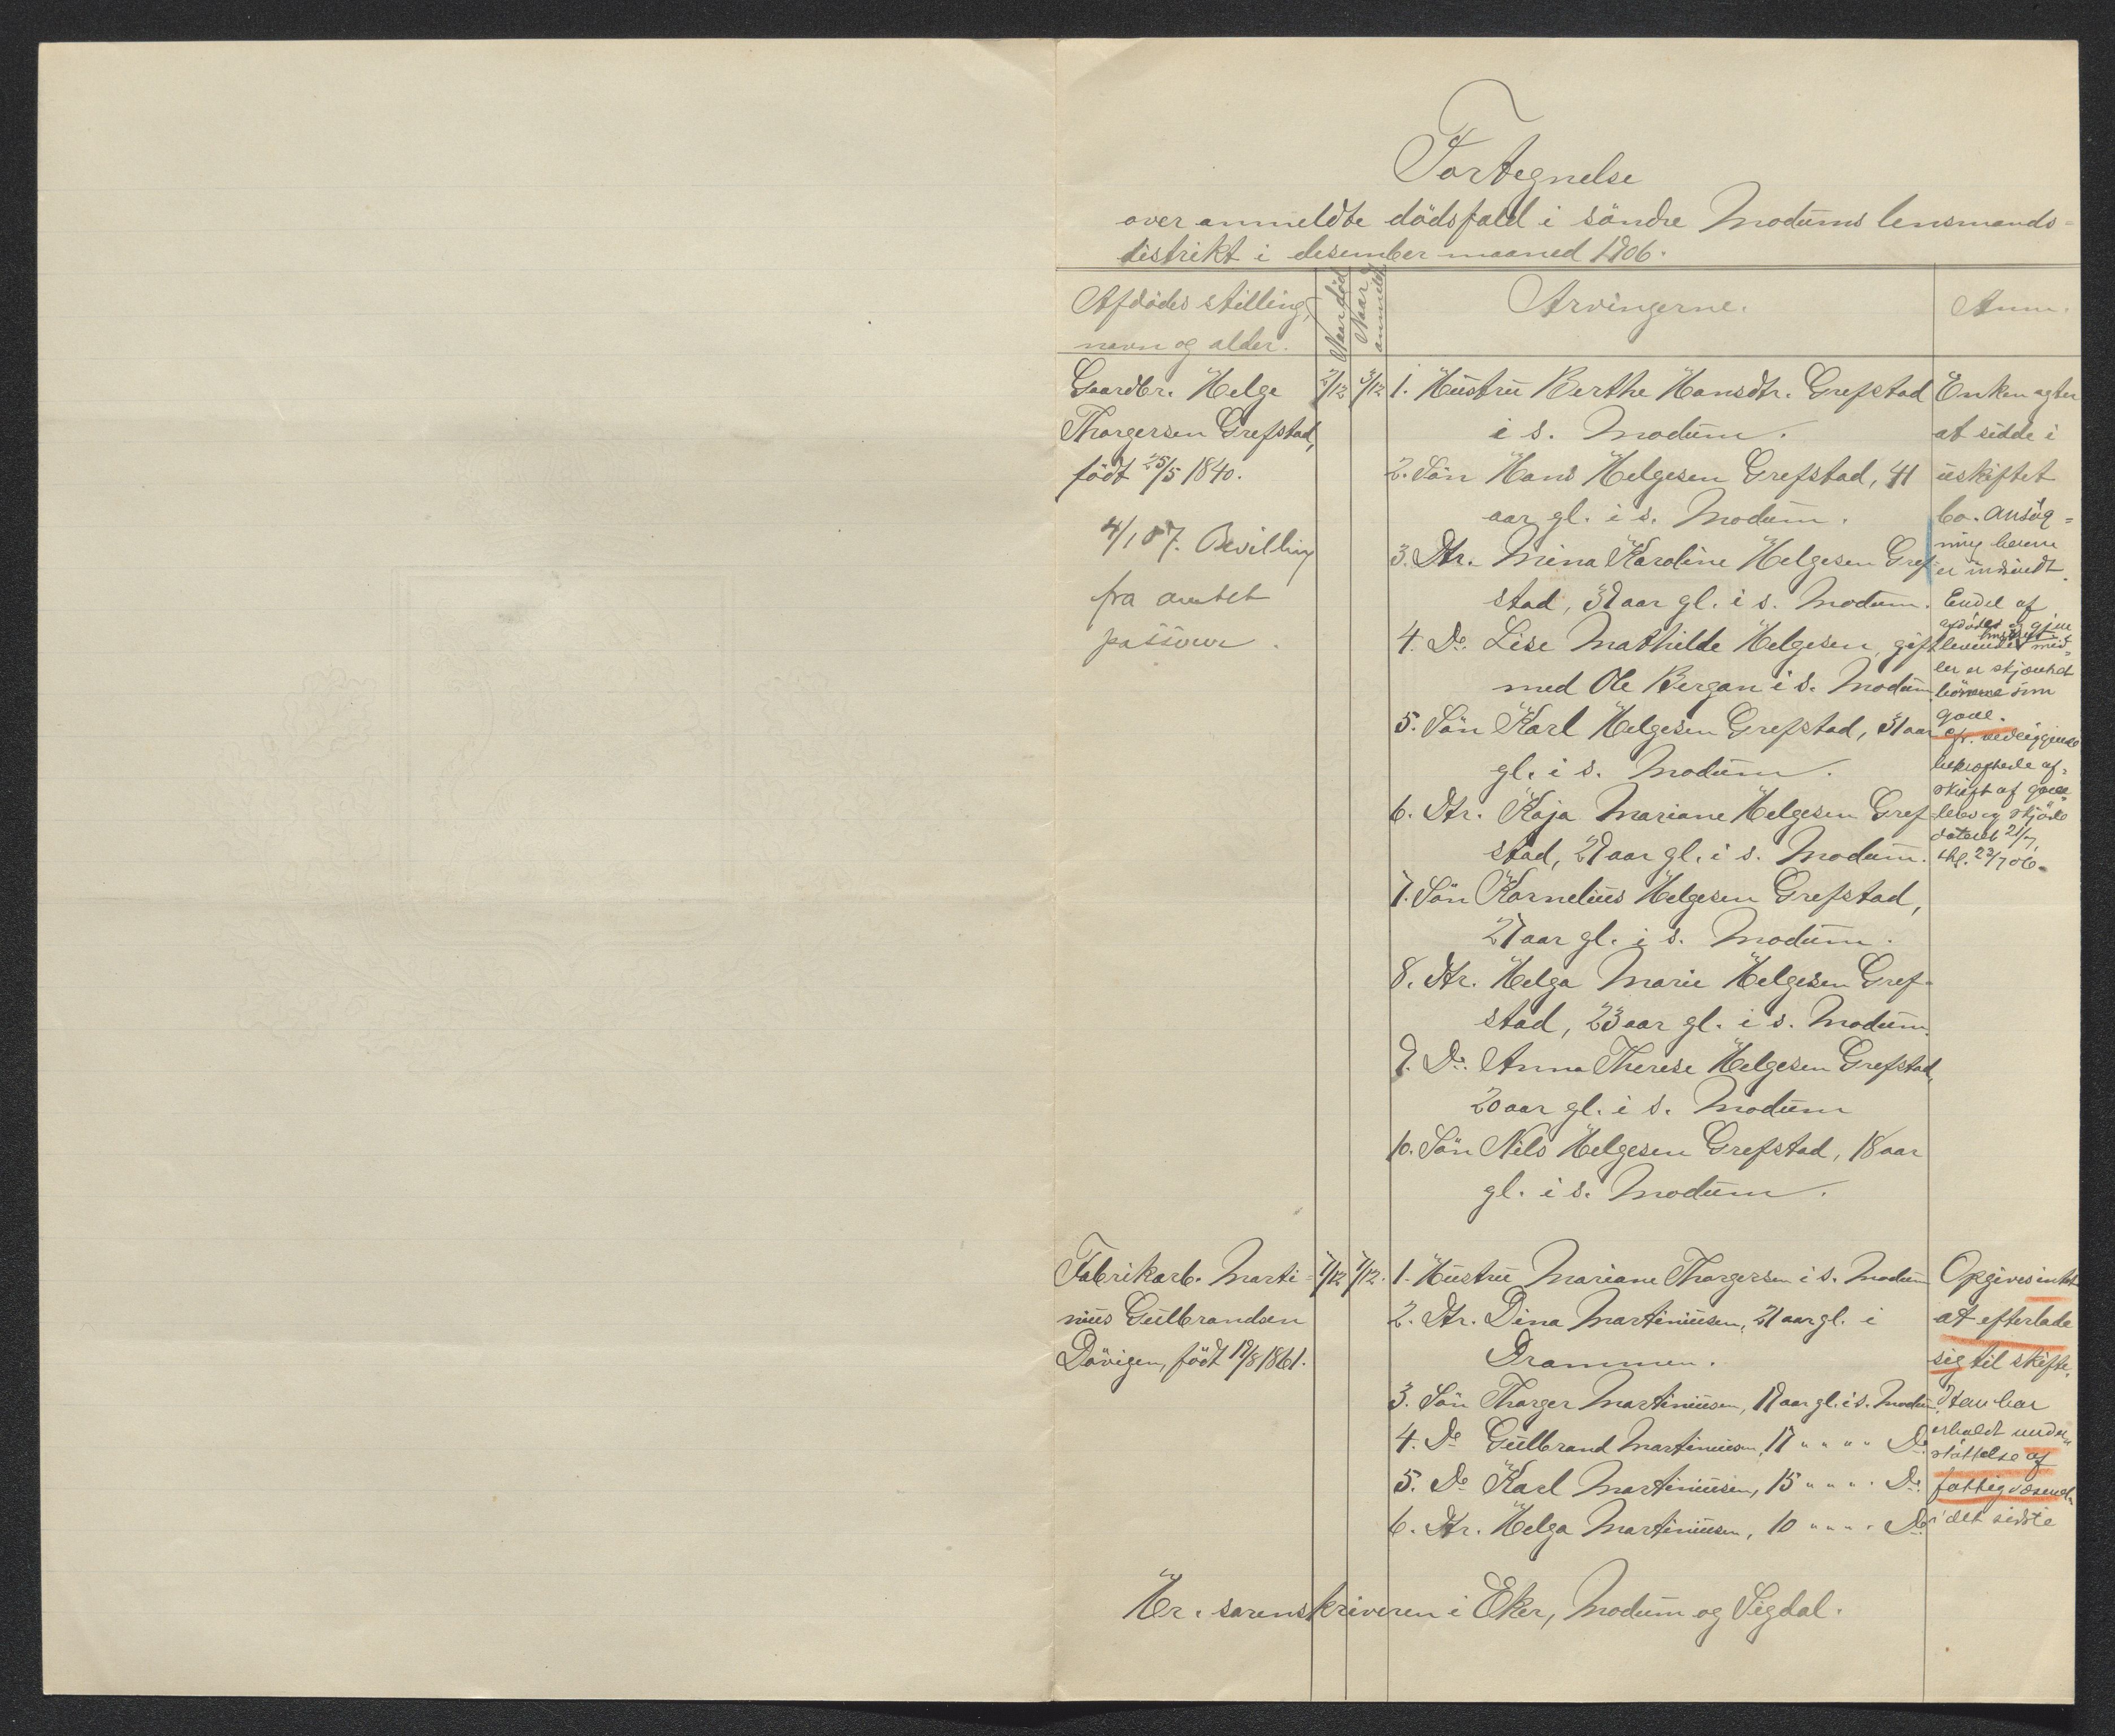 Fortegnelse
over anmeldte dödsfald i söndre Modums lensmands-
distrikt i desember maaned 1906.
Afdödes stilling,
navn og alder.
Naar död
Naar anmeldt
Arvingerne.
Anm.
Gaardbr. Helge
Thorgersen Grefstad,
födt 25/5 1840.
4/1 07. Bevilling
fra amtet
2/12
3/12
1. Hustru Berthe Hansdtr. Grefstad
i s. Modum.
2. Sön Hans Helgesen Grefstad, 41
aar gl. i s. Modum.
3. Dtr. Mina Karoline Helgesen Gref-
stad, 37 aar gl. i s. Modum.
4. Do. Lise Mathilde Helgesen, gift
med Ole Bergan i s. Modum
5. Sön Karl Helgesen Grefstad, 31 aar
gl. i s. Modum.
6. Dtr. Kaja Mariane Helgesen Gref-
stad, 29 aar gl. i s. Modum.
7. Sön Kornelius Helgesen Grefstad,
27 aar gl. i s. Modum.
8. Dtr. Helga Marie Helgesen Gref-
stad, 23 aar gl. i s. Modum.
9. Do. Anna Therese Helgesen Grefstad,
20 aar gl. i s. Modum
10. Sön Nils Helgesen Grefstad, 18 aar
gl. i s. Modum.
Enken agter
at sidde i
uskiftet
bo. Ansög-
ning herom
er indsendt.
Endel af
afdödes og gjen
levendes mid-
ler er skjænket
börnene som
gave.
Cfr. vedliggende
bekræftede af-
skrift af gave-
brev og skjöde
dateret 21/7,
thl. 23/7 06.
Fabrikarb. Marti-
nius Gulbrandsen
Dövigen, födt 19/8 1861.
7/12
7/12.
1. Hustru Mariane Thorgersen i s. Modum
2. Dtr. Dina Martiniusen, 21 aar gl. i
Drammen.
3. Sön Thorger Martiniusen, 19 aar gl. i s. Modum.
4. Do Gulbrand Martiniusen, 17 " " " " Do.
5. Do Karl Martiniusen, 15 " " " " Do.
6. Dtr. Helga Martiniusen, 10 " " " " Do
Opgives intet
at efterlade
sig til skifte.
Han har
erholdt under-
støttelse af
fattigvæsenet
i det sidste
Hr. sorenskriveren i Eker, Modum og Sigdal.